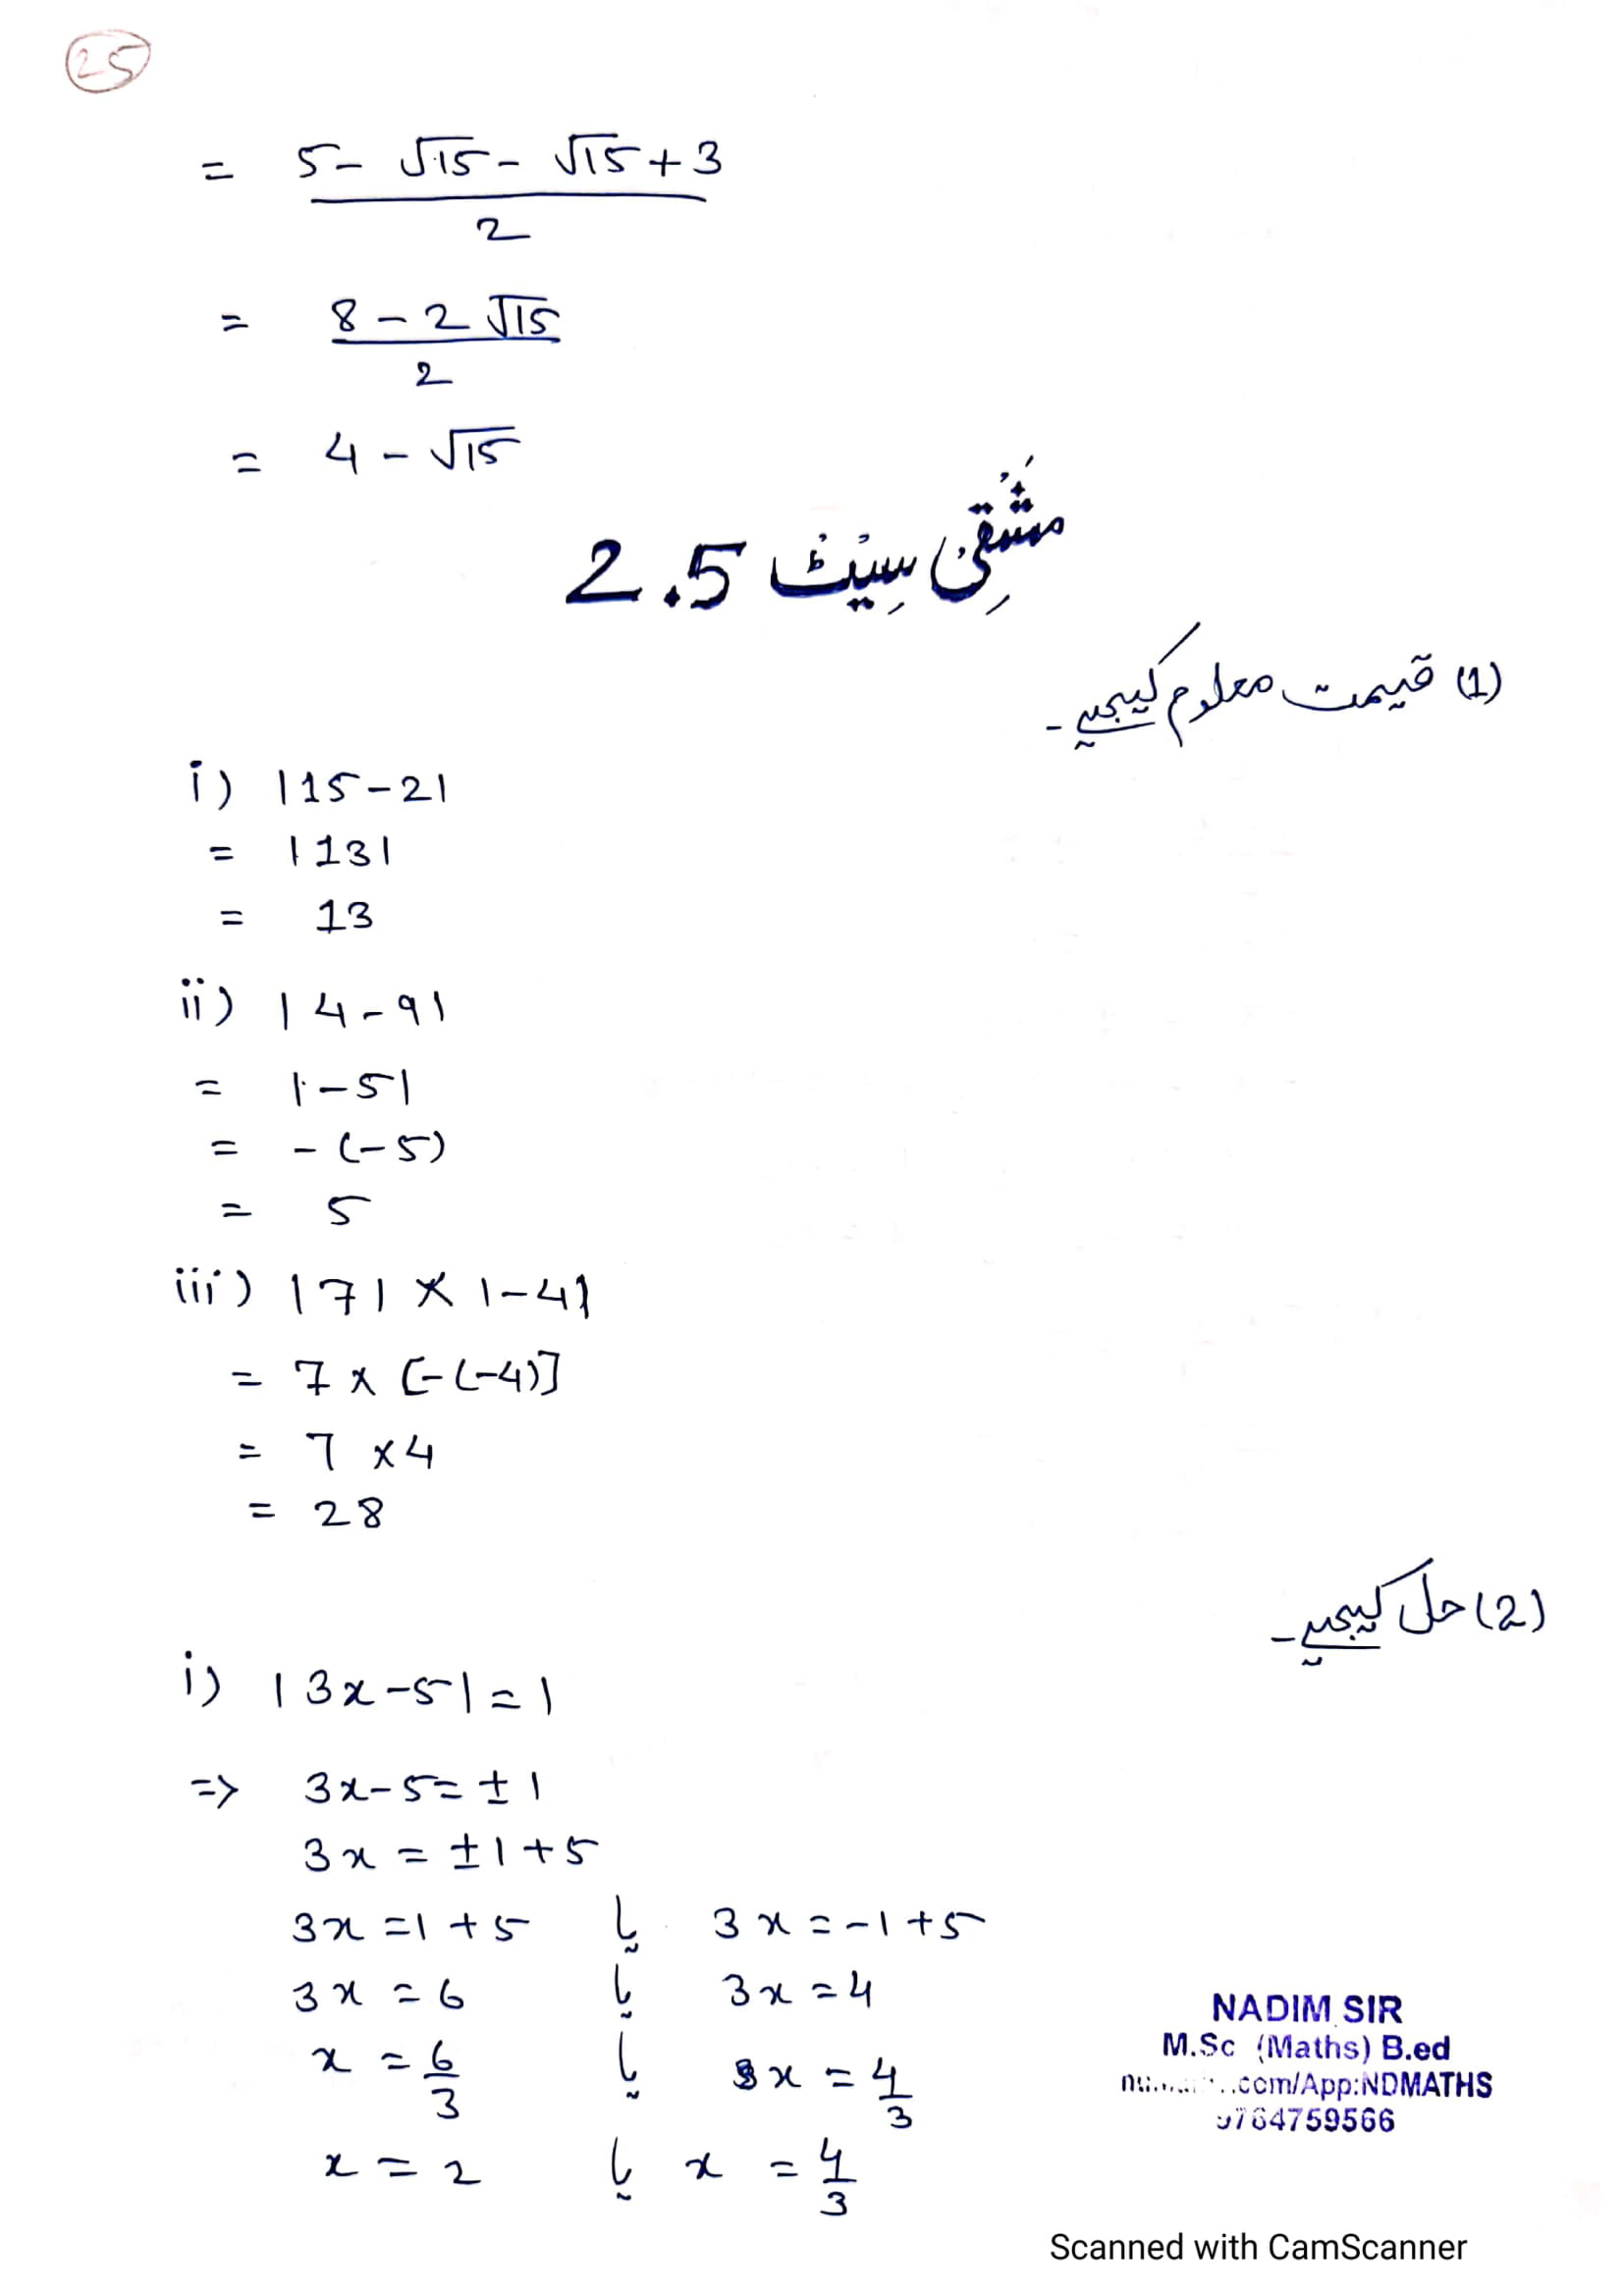 25
= 5 - √15 - √15 + 3
2
= 8 - 2 √15
2
= 4 - √15
مَشْقِی سِیٹ 2.5
(1) قیمت معلوم کیجیے۔
i) |15-2|
= |13|
= 13
ii) |4-9|
= |-5|
= -(-5)
= 5
iii) |7| × |-4|
= 7 × [-(-4)]
= 7 × 4
= 28
(2) حل کیجیے۔
i) |3x-5| = 1
=> 3x-5 = ±1
3x = ±1+5
3x = 1+5 یا 3x = -1+5
3x = 6 یا 3x = 4
x = 6/3 یا x = 4/3
x = 2 یا x = 4/3
NADIM SIR
M.Sc (Maths) B.ed
.com/App:NDMATHS
9764759566
Scanned with CamScanner